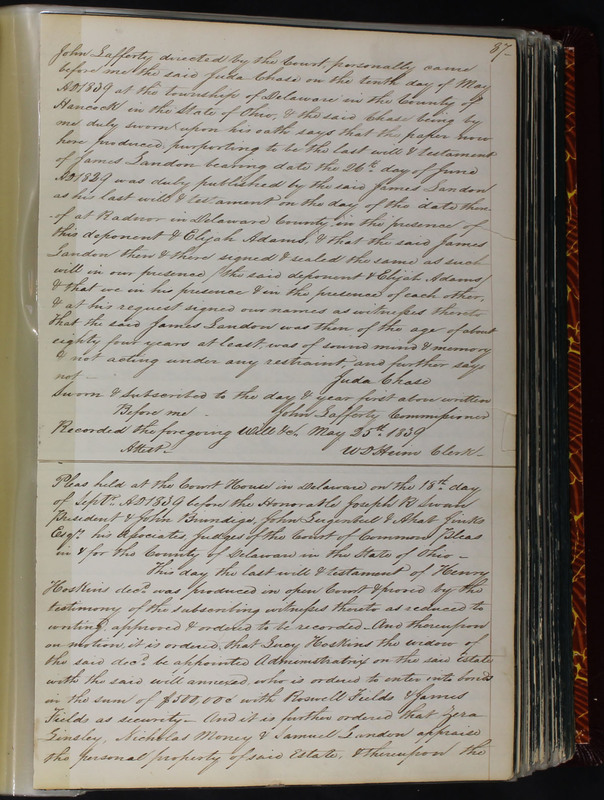 87
John Lafferty directed by the Court personally came
before me the said Juda Chase on the tenth day of May
AD 1839 at the township of Delaware in the County of
Hancock in the State of Ohio, & the said Chase being by
me duly sworn upon his oath says that the paper now
here produced, purporting to be the last will & testament
of James Landon bearing date the 26th day of June
AD 1829 was duly published by the said James Landon
as his last will & testament on the day of the date there-
of at Radnor in Delaware County in the presence of
this deponent & Elijah Adams, & that the said James
Landon then & there signed & sealed the same as such
will in our presence, the said deponent & Elijah Adams,
& that we in his presence & in the presence of each other,
& at his request signed our names as witnesses thereto
that the said James Landon was then of the age of about
eighty four years at least, was of sound mind & memory
& not acting under any restraint, and further says
not — Juda Chase
Sworn & Subscribed to the day & year first above written
Before me - John Lafferty Commissioner
Recorded the foregoing Will &c. May 25th 1839
Attest — W D Heim Clerk —
Pleas held at the Court House in Delaware on the 18th day
of Septr. AD 1839 before the Honorable Joseph R Swan
President & John Brundige, John Lugenbeel & Ahab Jinks
Esqrs. his Associates, judges of the Court of Common Pleas
in & for this County of Delaware in the State of Ohio —
This day the last will & testament of Henry
Hoskins decd. was produced in open Court & proved by the
testimony of the subscribing witnesses thereto as reduced to
writing, approved & ordered to be recorded - And thereupon
on motion, it is ordered, that Lucy Hoskins the widow of
the said decd. be appointed Administratrix on the said Estate
with the said will annexed, who is ordered to enter into bonds
in the sum of $500,00c with Roswell Fields & James
Fields as security — And it is further ordered that Zera
Linsley, Nicholas Money & Samuel Landon appraise
the personal property of said Estate, & thereupon the